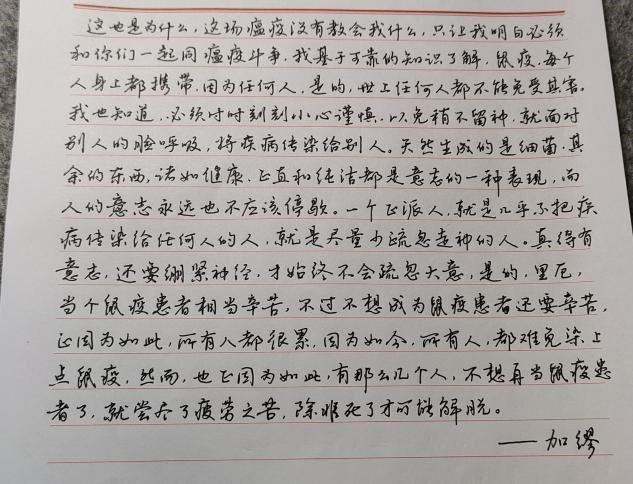 这也是为什么，这场瘟疫没有教会我什么，只让我明白必须
和你们一起同瘟疫斗争，我基于可靠的知识了解，鼠疫，每个
人身上都携带，因为任何人，是的，世上任何人都不能免受其害。
我也知道，必须时时刻刻小心谨慎，以免稍不留神，就面对
别人的脸呼吸，将疾病传染给别人。天然生成的是细菌，其
余的东西，诸如健康、正直和纯洁都是意志的一种表现，而
人的意志永远也不应该停歇。一个正派人，就是几乎不把疾
病传染给任何人的人，就是尽量少疏忽走神的人。真得有
意志，还要绷紧神经，才始终不会疏忽大意，是的，里厄，
当个鼠疫患者相当辛苦，不过不想成为鼠疫患者还要辛苦，
正因为如此，所有人都很累，因为如今，所有人，都难免染上
点鼠疫，然而，也正因为如此，有那么几个人，不想再当鼠疫患
者了，就尝尽了疲劳之苦，除非死了才可能解脱。
——加缪